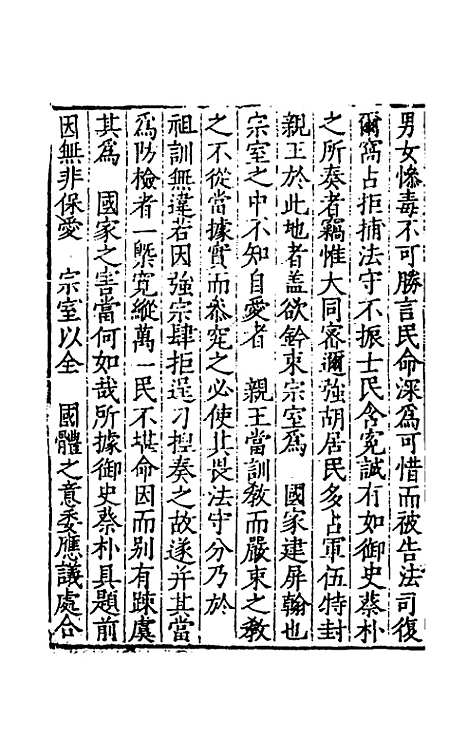 男女慘毒不可勝言民命深爲可惜而被告法司復
爾窩占拒捕法守不振士民含寃誠有如御史蔡朴
之所奏者竊惟大同密邇強胡居民多占軍伍特封
親王於此地者蓋欲鈐束宗室爲　國家建屏翰也
宗室之中不知自愛者　親王當訓教而嚴束之教
之不從當據實而叅究之必使其畏法守分乃於
祖訓無違若因強宗肆拒逞刁揑奏之故遂并其當
爲防檢者一槩寛縱萬一民不堪命因而别有踈虞
其爲　國家之害當何如哉所據御史蔡朴具題前
因無非保愛　宗室以全　國體之意委應議處合